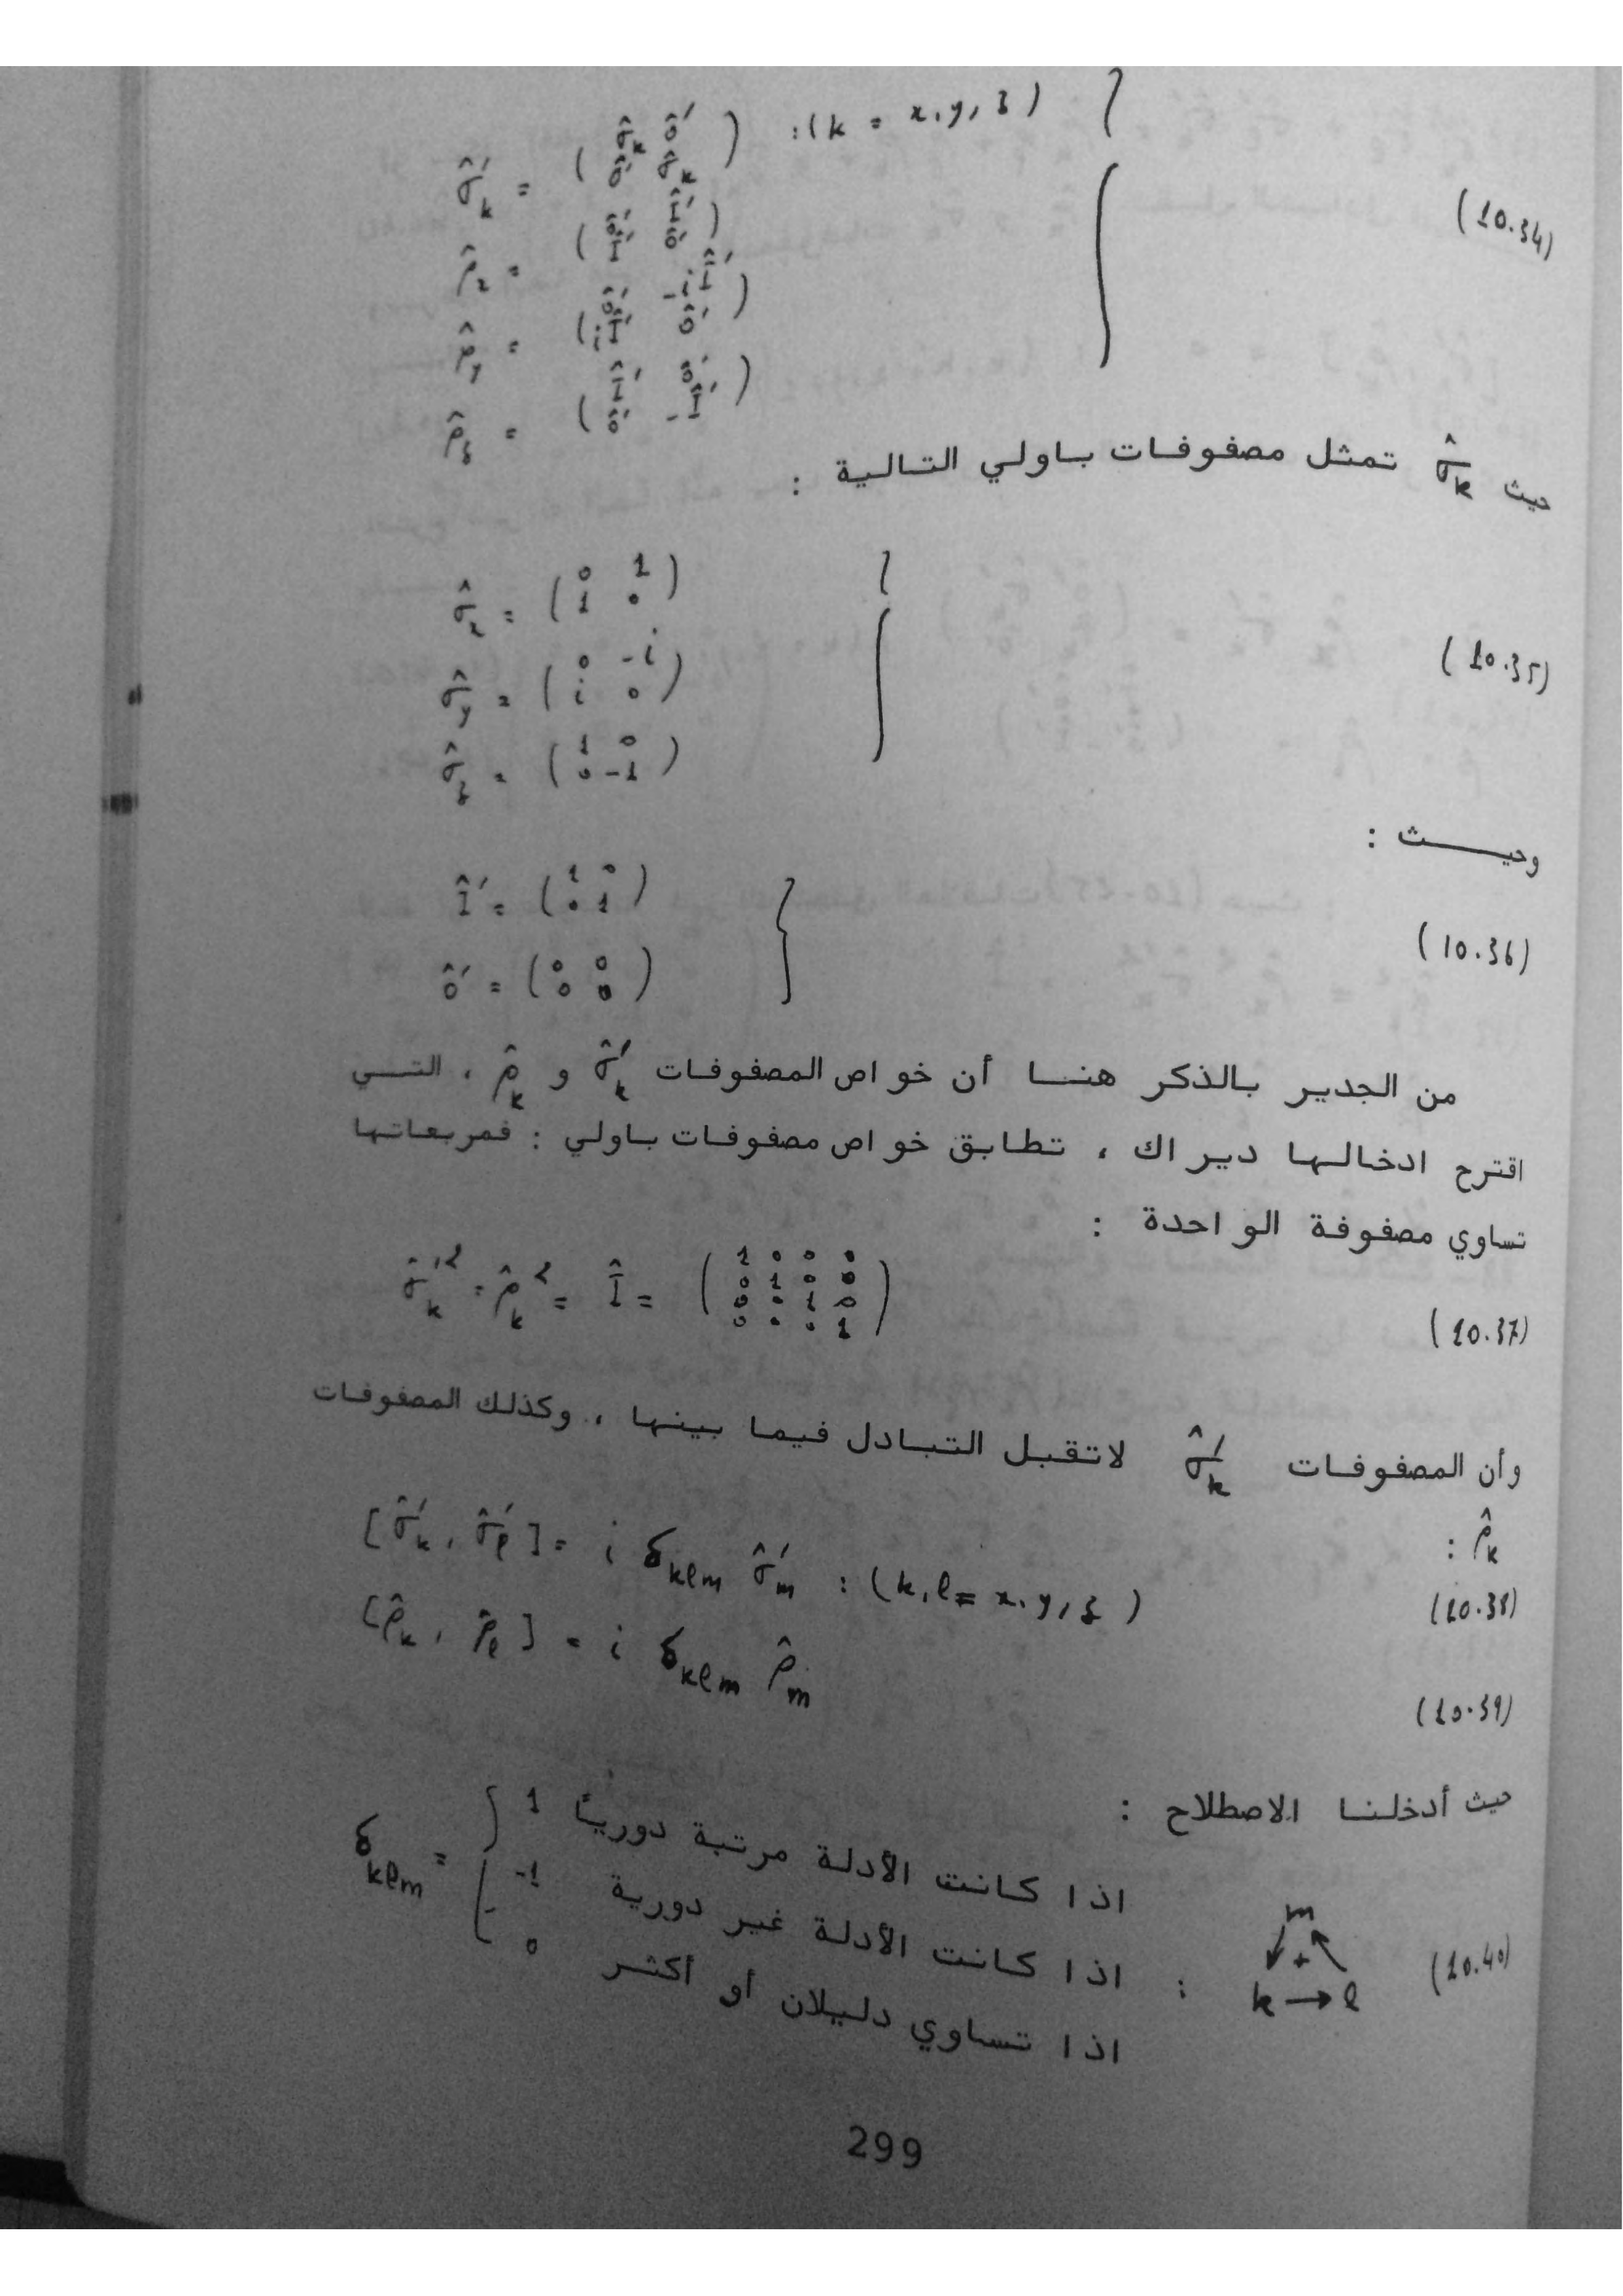 σ̂′_k = ( σ̂_k ô′ ; ô′ σ̂_k ) :(k = x, y, z)
ρ̂_x = ( ô′ Î′ ; Î′ ô′ )
(10.34)
ρ̂_y = ( ô′ -iÎ′ ; iÎ′ ô′ )
ρ̂_z = ( Î′ ô′ ; ô′ -Î′ )
حيث σ̂_k تمثل مصفوفات باولي التالية :
σ̂_x = ( 0 1 ; 1 0 )
σ̂_y = ( 0 -i ; i 0 ) (10.35)
σ̂_z = ( 1 0 ; 0 -1 )
وحيـــث :
Î′ = ( 1 0 ; 0 1 )
(10.36)
ô′ = ( 0 0 ; 0 0 )
من الجدير بالذكر هنا أن خواص المصفوفات σ̂′_k و ρ̂_k ، التي
اقترح ادخالها ديراك ، تطابق خواص مصفوفات باولي : فمربعاتها
تساوي مصفوفة الواحدة :
σ̂′²_k = ρ̂²_k = Î = ( 1 0 0 0 ; 0 1 0 0 ; 0 0 1 0 ; 0 0 0 1 ) (10.37)
وأن المصفوفات σ̂′_k لاتقبل التبادل فيما بينها ، وكذلك المصفوفات
ρ̂_k :
[σ̂′_k , σ̂′_ℓ] = i δ_kℓm σ̂′_m : (k, ℓ = x, y, z) (10.38)
[ρ̂_k , ρ̂_ℓ] = i δ_kℓm ρ̂_m (10.39)
حيث أدخلنا الاصطلاح :
1 اذا كانت الأدلة مرتبة دورياً
δ_kℓm = { -1 اذا كانت الأدلة غير دورية : k → ℓ m + (10.40)
0 اذا تساوي دليلان أو أكثر
299